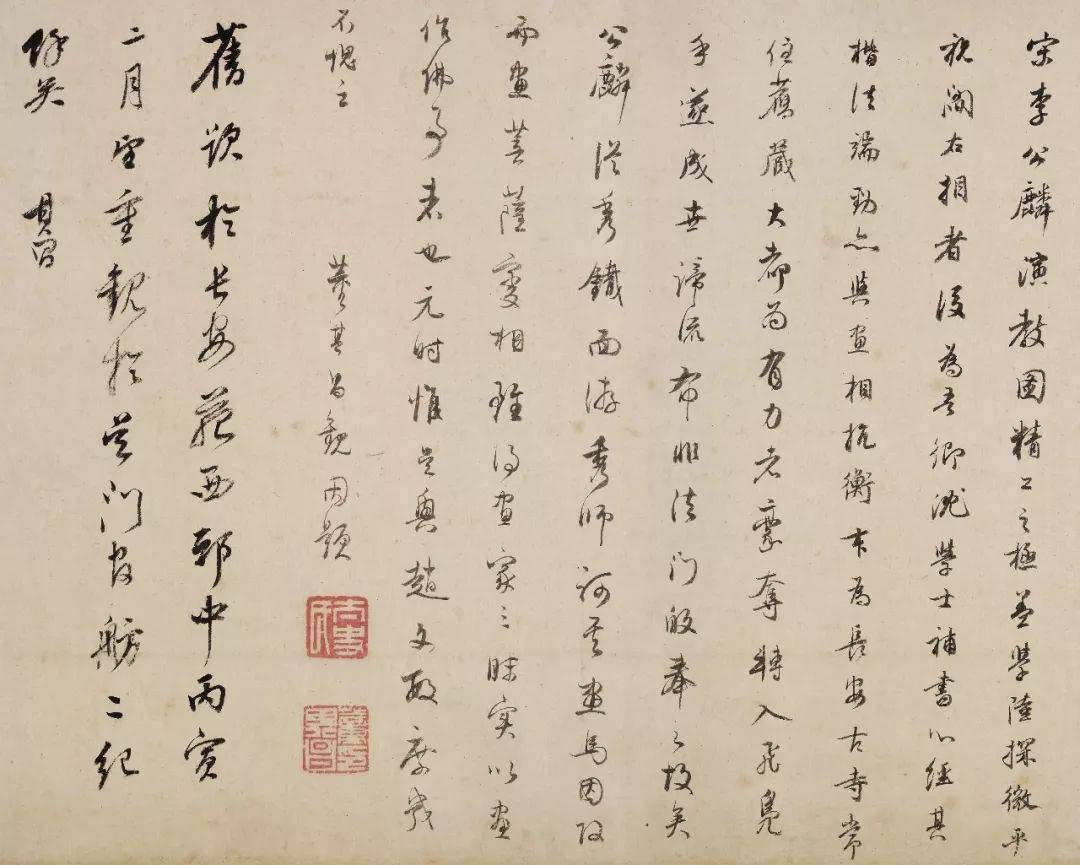 宋李公麟演教圖精工之極蓋學陸探微平
視閻右相者後為吾鄉沈學士補書心經其
楷法端勁亦與畫相抗衡本為長安古寺常
住舊藏大都為有力者豪奪轉入飛鳧
手遂成世諦流布非法門奉之故矣
公麟從秀鐵面游秀師訶其畫馬因改
而畫菩薩變相雖得畫家三昧實以畫
作佛事者也元時惟吳興趙文敏庶幾
不愧之 董其昌觀因題
舊題於長安苑西邸中丙寅
二月望重觀於吳門官舫二紀
餘矣 其昌